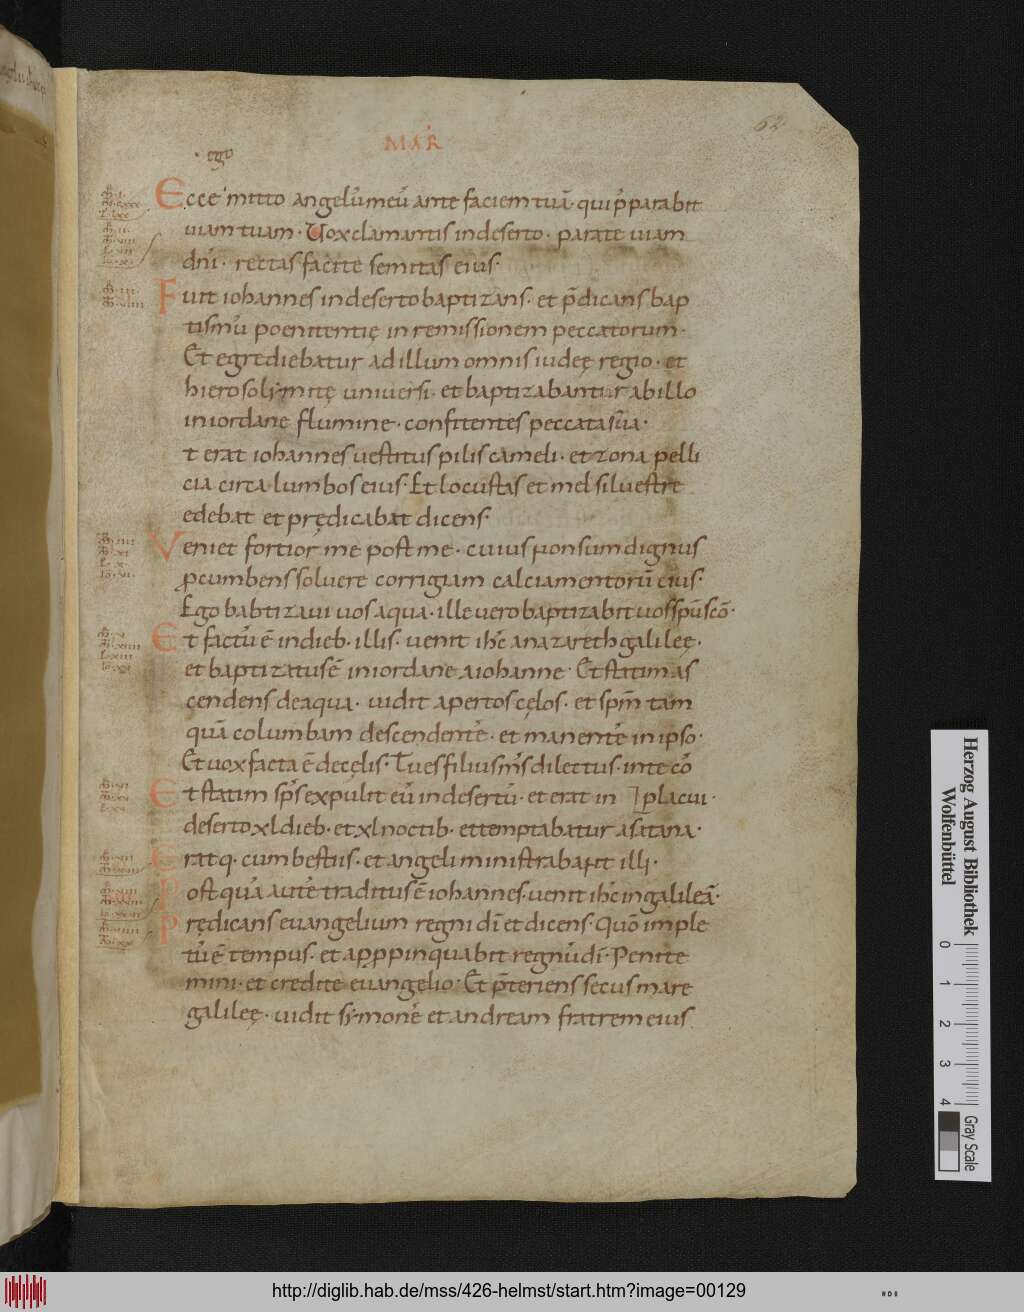 62
MAR̃
· ego
Ecce mitto angelũ meũ ante faciem tuã· qui p̃parabit
uiam tuam· Uox clamantis in deserto· parate uiam
dnĩ· rectas facite semitas eius·
Fuit iohannes in deserto baptizans· et p̃dicans bap
tismũ poenitentię in remissionem peccatorum·
Et egrediebatur ad illum omnis iudeę regio· et
hierosolymitę uniuersi· et baptizabantur ab illo
in iordane flumine· confitentes peccata sua·
t erat iohannes uestitus pilis cameli· et zona pelli
cia circa lumbos eius· Et locustas et mel siluestre
edebat et prędicabat dicens·
Veniet fortior me post me· cuius non sum dignus
ꝓcumbens soluere corrigiam calciamentorũ eius·
Ego babtizaui uos aqua· ille uero baptizabit uos spũ scõ·
Et factũ ẽ in dieb· illis· uenit ihc̃ a nazareth galileę·
et baptizatus ẽ in iordane a iohanne· Et statim as
cendens de aqua· uidit apertos cęlos· et spm̃ tam
quã columbam descendentẽ· et manentẽ in ipso·
Et uox facta ẽ de cęlis· Tu es filius ms̃ dilectus· in te cõ
Et statim sps̃ expulit eũ in desertũ· et erat in placui·
deserto xl dieb· et xl noctib· et temptabatur a satana·
Eratq· cum bestiis· et angeli ministrabant illi·
Postquã autẽ traditus ẽ iohannes· uenit ihc̃ in galileã·
Prędicans euangelium regni dĩ et dicens· Quõ imple
tũ ẽ tempus· et appropinquabit regnũ dĩ· Penite
mini· et credite euangelio· Et p̃teriens secus mare
galileę· uidit symonẽ et andream fratrem eius
Herzog August Bibliothek
Wolfenbüttel
0 1 2 3 4
Gray Scale
http://diglib.hab.de/mss/426-helmst/start.htm?image=00129